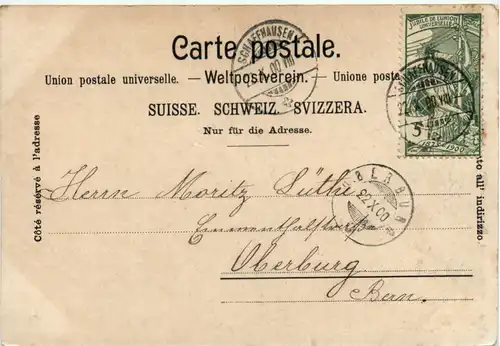 Carte postale.
Union postale universelle. – Weltpostverein. – Unione posta
SUISSE. SCHWEIZ. SVIZZERA.
Nur für die Adresse.
Côté réservé à l'adresse
to all' indirizzo.
SCHAFFHAUSEN
JUBILÉ DE L'UNION
UNIVERSELLE
5
SCHAFFHAUSEN
OBERBURG
22.X.00
Herrn Moritz Lüthi
Emmenthalstrasse
Oberburg
Bern.